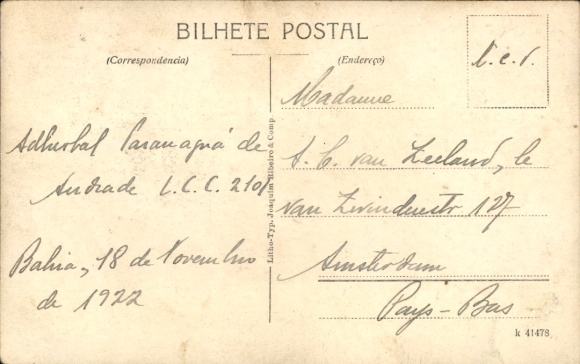 BILHETE POSTAL
(Correspondencia)
(Endereço)
Madame
A. C. van Zeeland, le
van 127
Amsterdam
Pays-Bas
Adherbal Paranaguá de
Andrade L.C.C. 2101
Bahia, 18 de Novembro
de 1922
Litho-Typ. Joaquim Ribeiro & Comp
k 41478